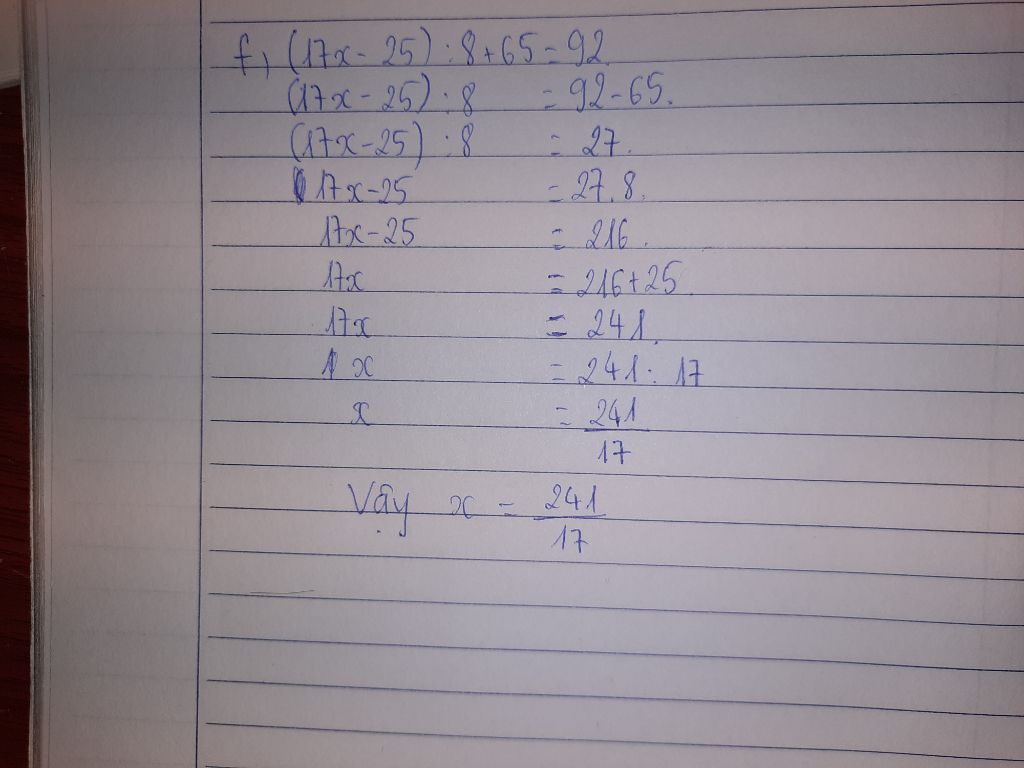 f, (17x - 25) : 8 + 65 = 92.
(17x - 25) : 8 = 92 - 65.
(17x - 25) : 8 = 27.
17x - 25 = 27.8.
17x - 25 = 216.
17x = 216 + 25
17x = 241.
x = 241 : 17
x = 241/17
Vậy x = 241/17